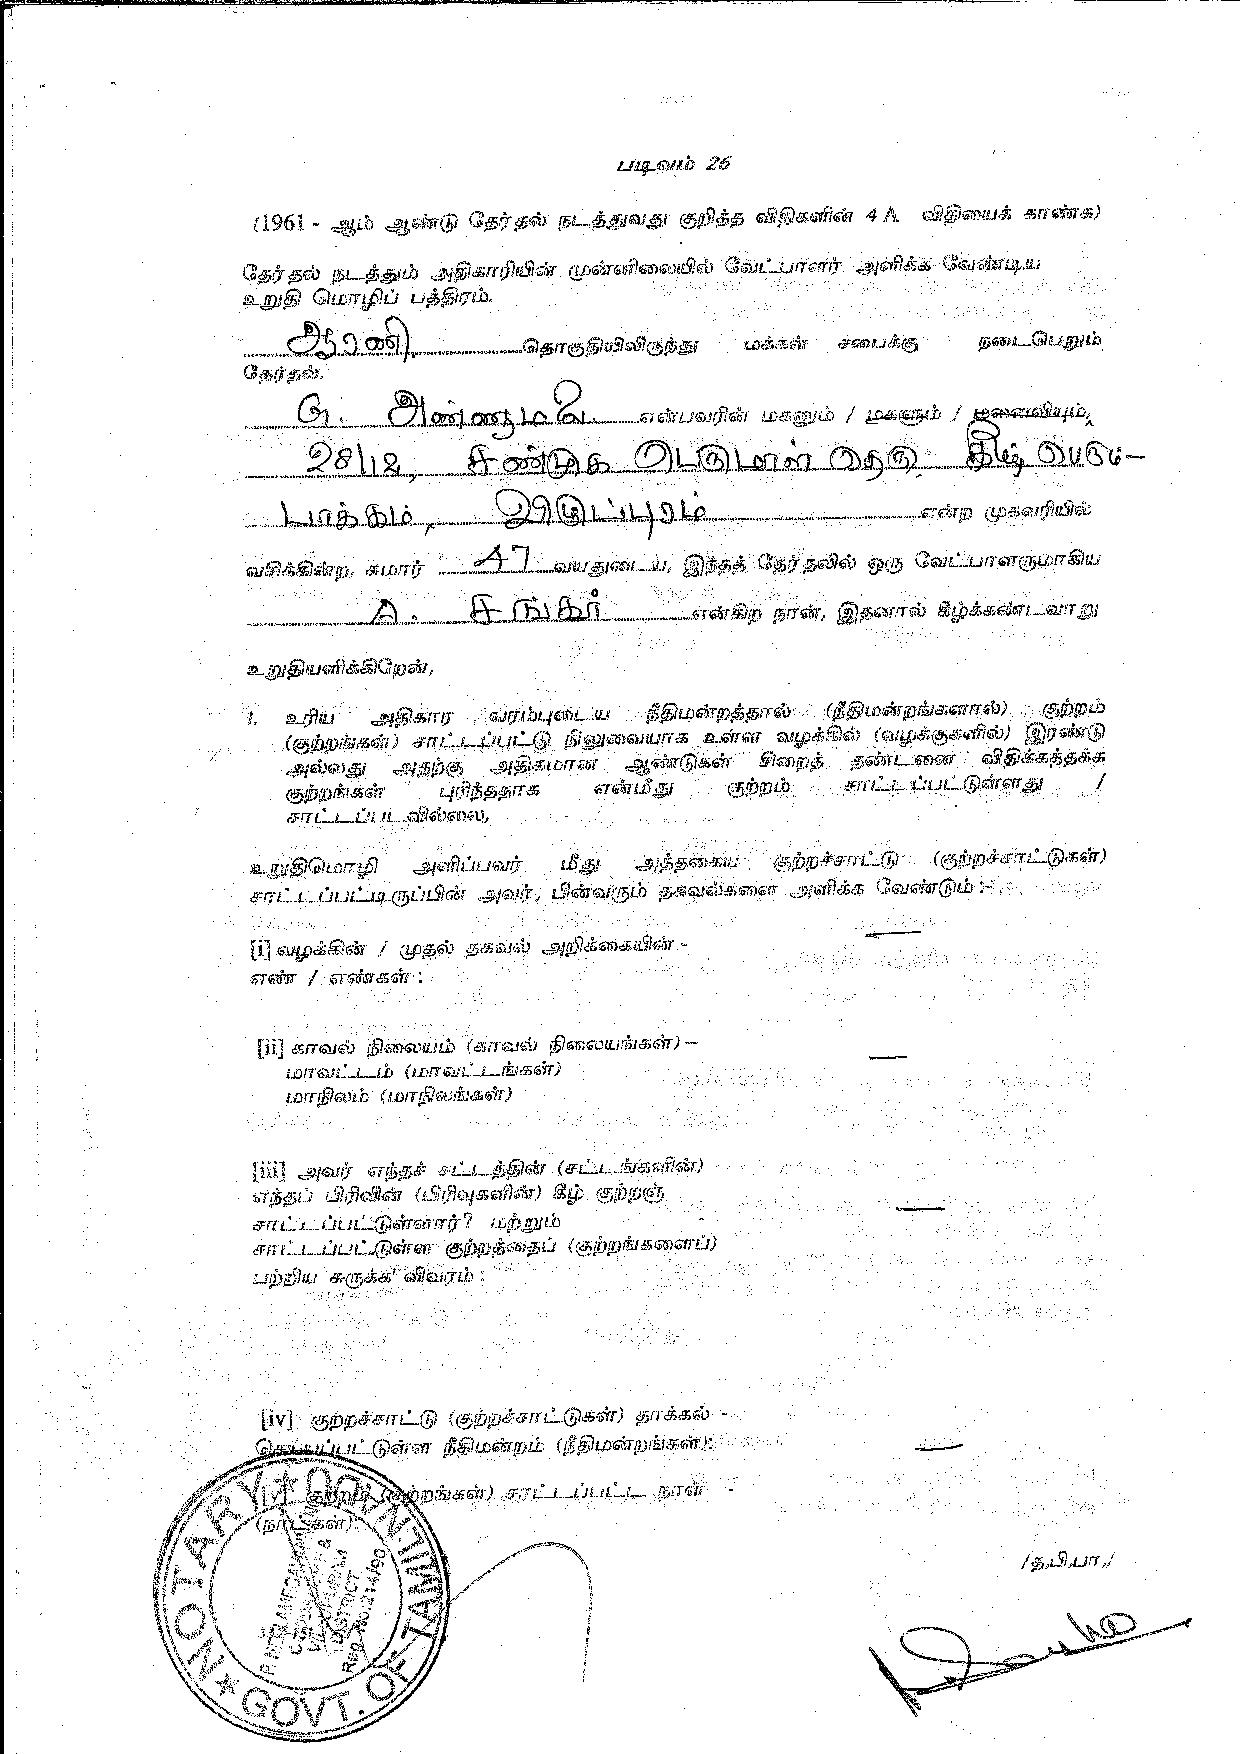 படிவம் 26
(1961 - ஆம் ஆண்டு தேர்தல் நடத்துவது குறித்த விதிகளின் 4 A விதியைக் காண்க)
தேர்தல் நடத்தும் அதிகாரியின் முன்னிலையில் வேட்பாளர் அளிக்க வேண்டிய
உறுதி மொழிப் பத்திரம்.
ஆரணி தொகுதியிலிருந்து மக்கள் சபைக்கு நடைபெறும்
தேர்தல்.
அண்ணாமலை என்பவரின் மகனும் / மகளும் / மனைவியும்,
28/12, சண்முக பெருமாள் தெரு கீழ் பெரும்-
பாக்கம், விழுப்புரம் என்ற முகவரியில்
வசிக்கின்ற, சுமார் 47 வயதுடைய, இந்தத் தேர்தலில் ஒரு வேட்பாளருமாகிய
A. சங்கர் என்கிற நான், இதனால் கீழ்க்கண்டவாறு
உறுதியளிக்கிறேன்,
1. உரிய அதிகார வரம்புடைய நீதிமன்றத்தால் (நீதிமன்றங்களால்) குற்றம்
(குற்றங்கள்) சாட்டப்பட்டு நிலுவையாக உள்ள வழக்கில் (வழக்குகளில்) இரண்டு
அல்லது அதற்கு அதிகமான ஆண்டுகள் சிறைத் தண்டனை விதிக்கத்தக்க
குற்றங்கள் புரிந்ததாக என்மீது குற்றம் சாட்டப்பட்டுள்ளது /
சாட்டப்படவில்லை,
உறுதிமொழி அளிப்பவர் மீது அந்தகைய குற்றச்சாட்டு (குற்றச்சாட்டுகள்)
சாட்டப்பட்டிருப்பின் அவர், பின்வரும் தகவல்களை அளிக்க வேண்டும் :-
[i] வழக்கின் / முதல் தகவல் அறிக்கையின் - —
எண் / எண்கள் :
[ii] காவல் நிலையம் (காவல் நிலையங்கள்) – —
மாவட்டம் (மாவட்டங்கள்)
மாநிலம் (மாநிலங்கள்)
[iii] அவர் எந்தச் சட்டத்தின் (சட்டங்களின்)
எந்தப் பிரிவின் (பிரிவுகளின்) கீழ் குற்றஞ் —
சாட்டப்பட்டுள்ளார்? மற்றும்
சாட்டப்பட்டுள்ள குற்றத்தைப் (குற்றங்களைப்)
பற்றிய சுருக்க விவரம் :
[iv] குற்றச்சாட்டு (குற்றச்சாட்டுகள்) தாக்கல் -
செய்யப்பட்டுள்ள நீதிமன்றம் (நீதிமன்றங்கள்): —
[v] குற்றம் (குற்றங்கள்) சாட்டப்பட்ட நாள் -
(நாட்கள்):
/த.பி.பா./
NOTARY ★ GOVT. OF TAMIL
DISTRICT